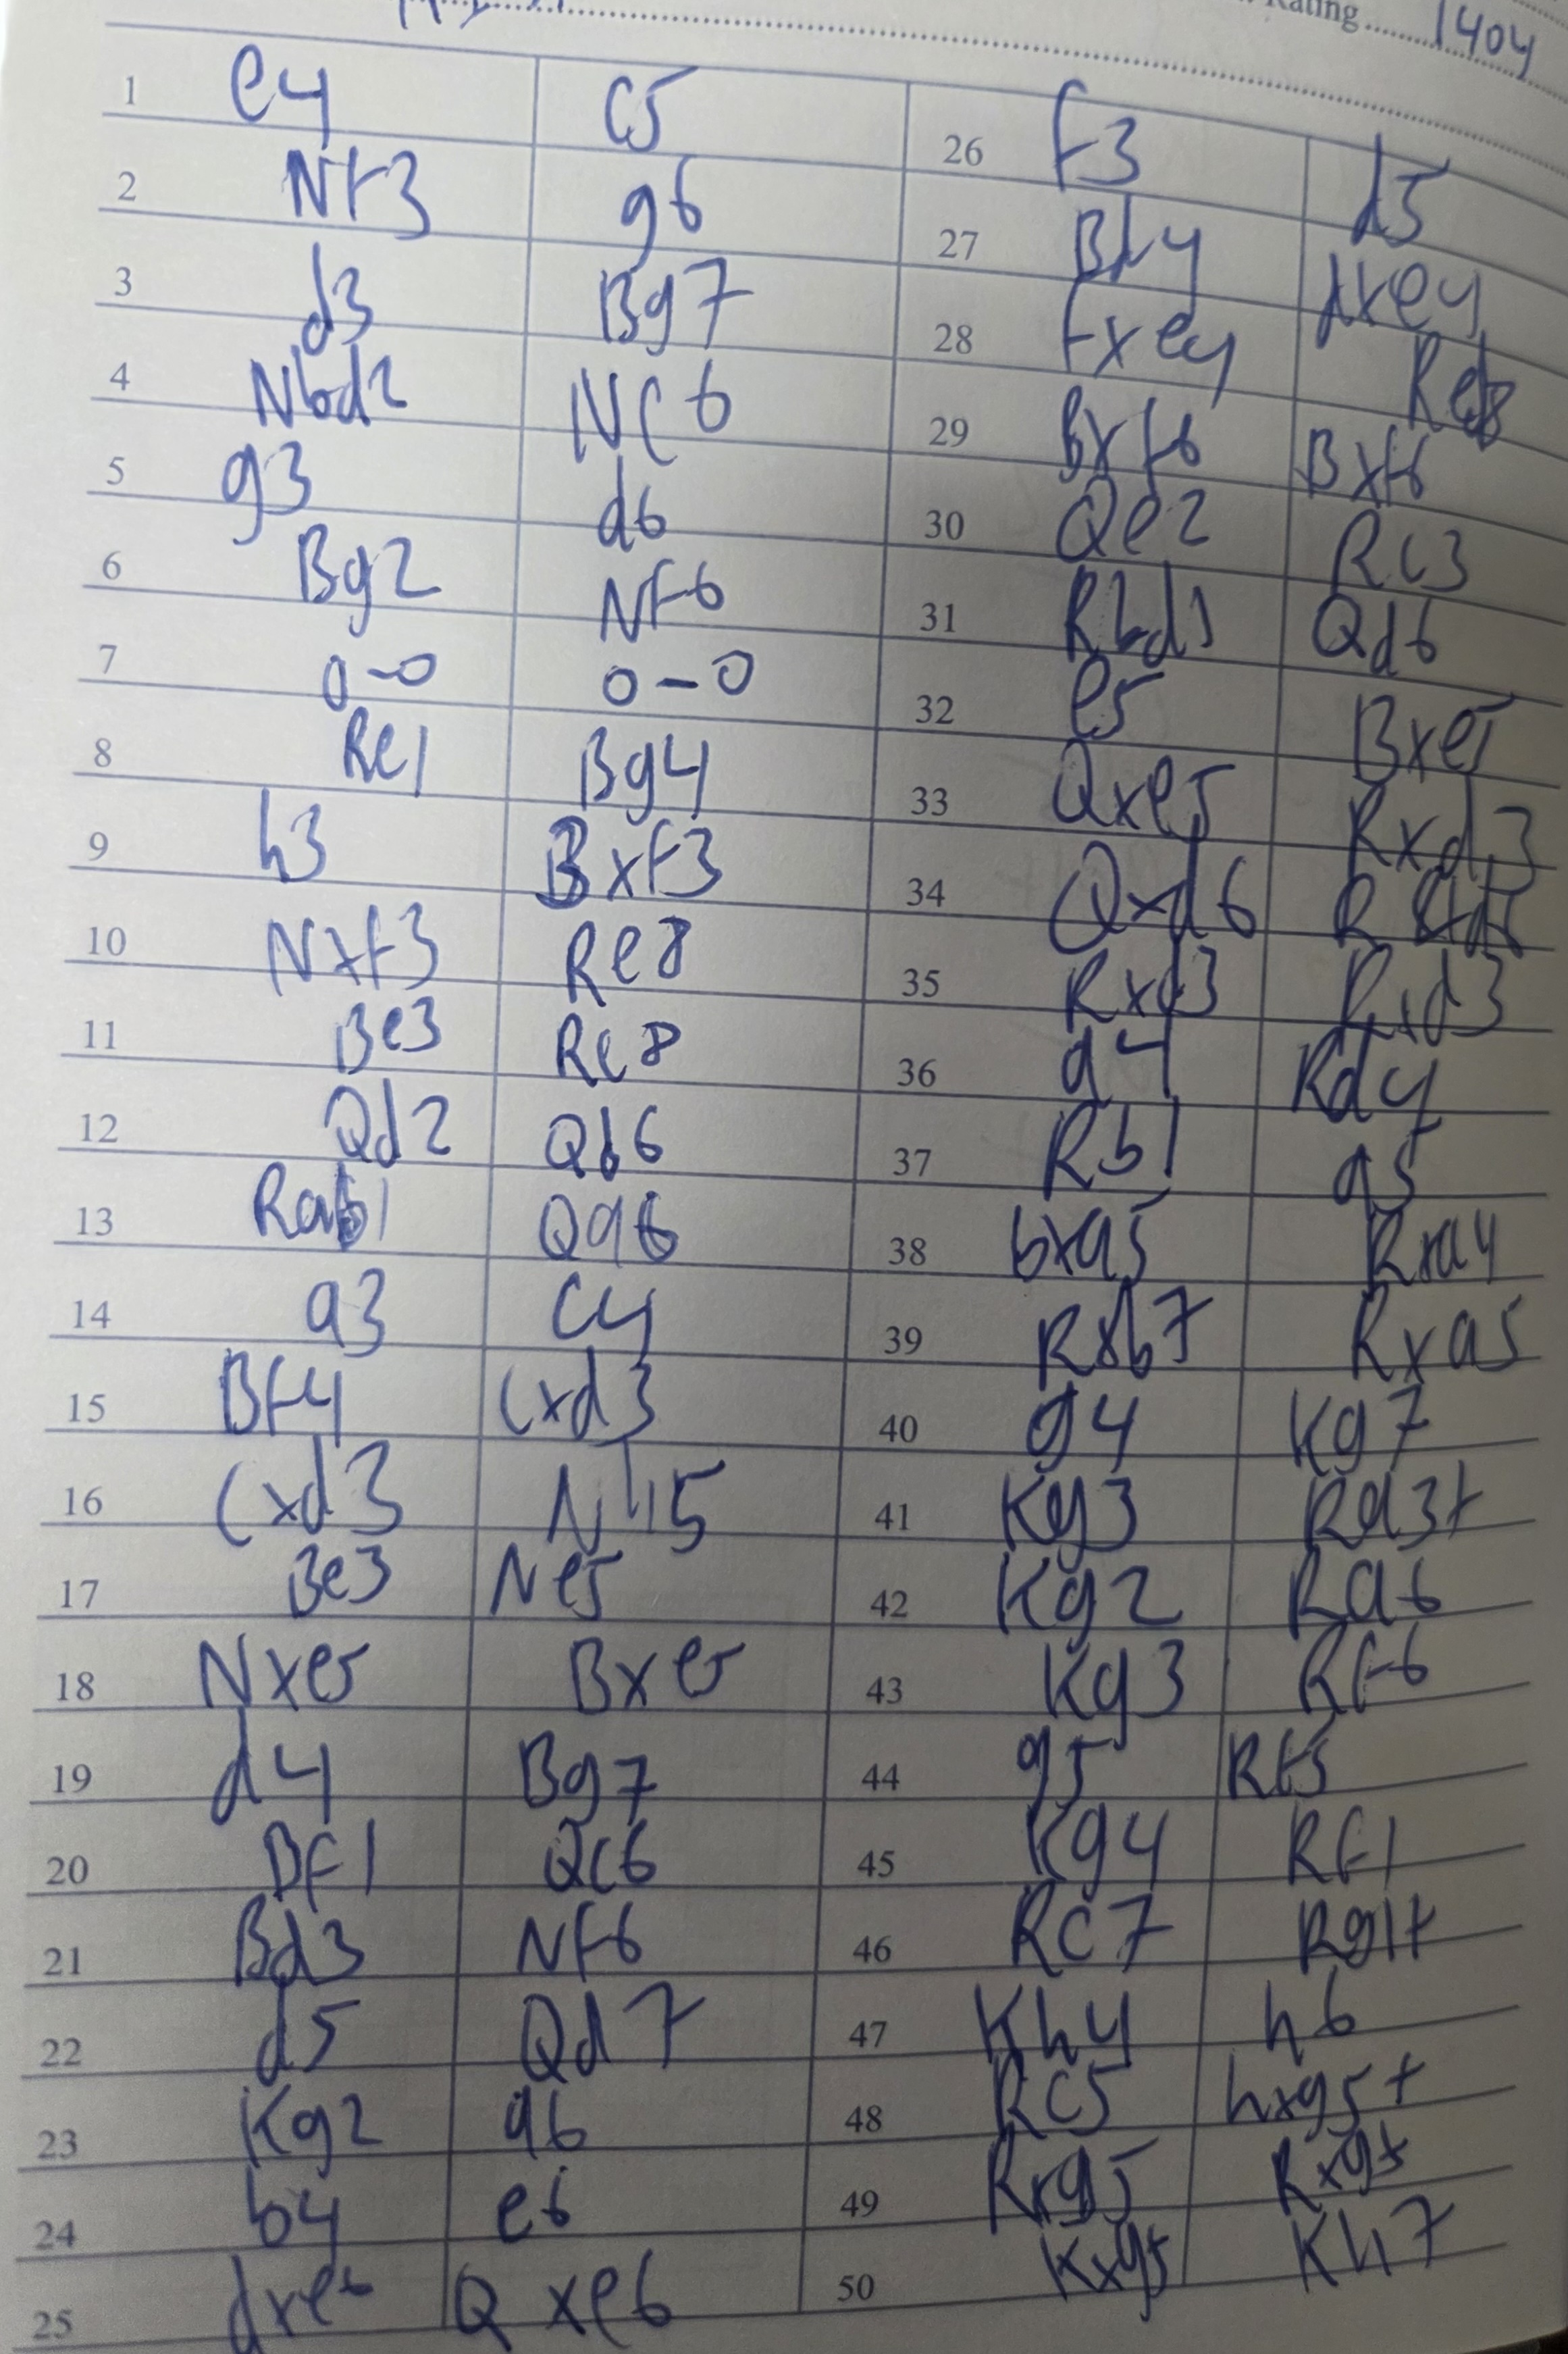 Rating 1404
1 e4 c5
2 Nf3 g6
3 d3 Bg7
4 Nbd2 Nc6
5 g3 d6
6 Bg2 Nf6
7 0-0 0-0
8 Re1 Bg4
9 h3 Bxf3
10 Nxf3 Re8
11 Be3 Rc8
12 Qd2 Qb6
13 Rab1 Qa6
14 a3 c4
15 Bf4 cxd3
16 cxd3 Nh5
17 Be3 Ne5
18 Nxe5 Bxe5
19 d4 Bg7
20 Bf1 Qc6
21 Bd3 Nf6
22 d5 Qd7
23 Kg2 a6
24 b4 e6
25 dxe6 Qxe6
26 f3 d5
27 Bd4 dxe4
28 fxe4 Red8
29 Bxf6 Bxf6
30 Qe2 Rc3
31 Rbd1 Qd6
32 e5 Bxe5
33 Qxe5 Rxd3
34 Qxd6 R
35 Rxd3 Rxd3
36 a4 Rd4
37 Rb1 a5
38 bxa5 Rxa4
39 Rxb7 Rxa5
40 g4 Kg7
41 Kg3 Ra3+
42 Kg2 Ra6
43 Kg3 Rf6
44 g5 Rf5
45 Kg4 Rf1
46 Rc7 Rg1+
47 Kh4 h6
48 Rc5 hxg5+
49 Rxg5 Rxg5
50 Kxg5 Kh7